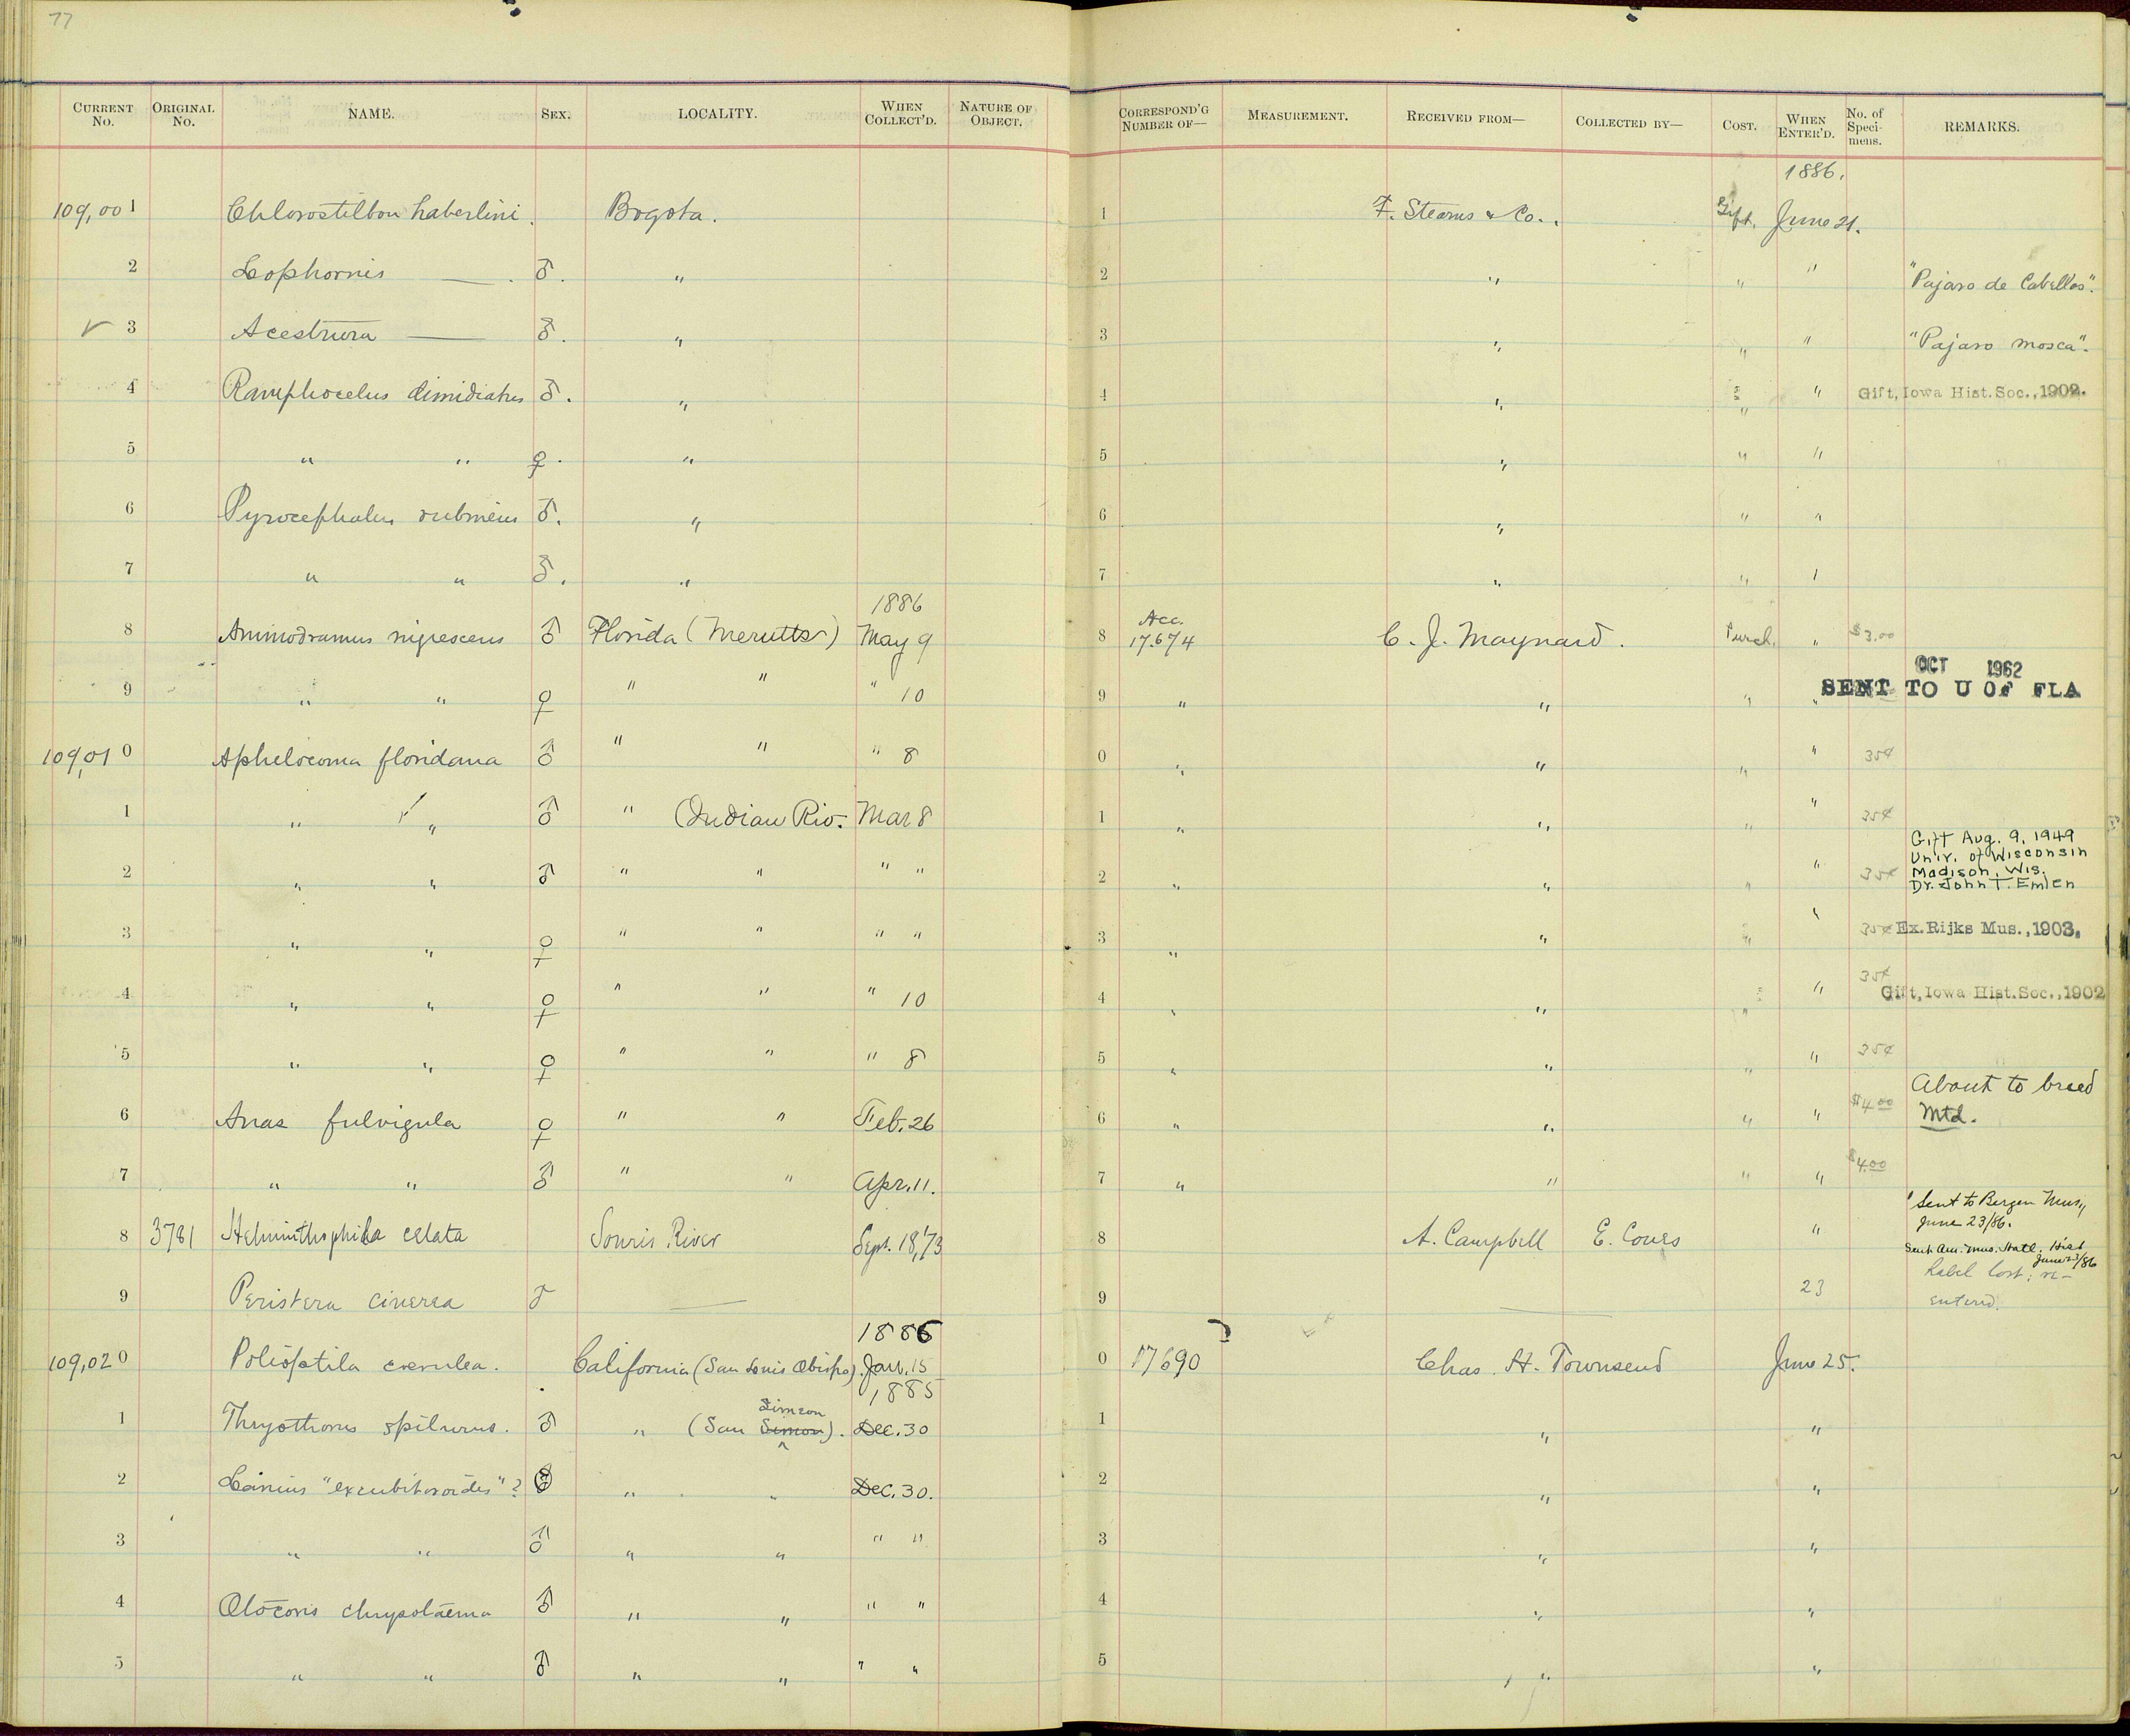 77
CURRENT No. ORIGINAL No. NAME. SEX. LOCALITY. WHEN COLLECT'D. NATURE OF OBJECT. CORRESPOND'G NUMBER OF— MEASUREMENT. RECEIVED FROM— COLLECTED BY— COST. WHEN ENTER'D. No. of Specimens. REMARKS.
1886.
109,001 Chlorostilbon haberlini. Bogota. 1 F. Stearns & Co. Gift. June 21.
2 Lophornis — . ♂. " 2 " " " "Pajaro de Cabellos".
3 Acestrura — ♂. " 3 " " " "Pajaro mosca".
4 Ramphocelus dimidiatus ♂. " 4 " " " Gift, Iowa Hist. Soc., 1902.
5 " " ♀. " 5 " " "
6 Pyrocephalus rubineus ♂. " 6 " " "
7 " " ♂. " 7 " " "
1886
8 Ammodramus nigrescens ♂ Florida (Merritts) May 9 8 Acc. 17.674 C. J. Maynard. Purch. " $3.00
OCT 1962
9 " " ♀ " " " 10 9 " " " " SENT TO U OF FLA
109,010 Aphelocoma floridana ♂ " " " 8 0 " " " " 35¢
1 " " ♂ " (Indian Riv. Mar 8 1 " " " " 35¢
2 " " ♂ " " " " 2 " " " " 35¢ Gift Aug. 9, 1949
Univ. of Wisconsin
Madison, Wis.
Dr. John T. Emlen
3 " " ♀ " " " " 3 " " " " 35¢ Ex. Rijks Mus., 1903.
4 " " ♀ " " " 10 4 " " " " 35¢ Gift, Iowa Hist. Soc., 1902
5 " " ♀ " " " 8 5 " " " " 35¢
6 Anas fulvigula ♀ " " Feb. 26 6 " " " " $4.00 About to breed
Mtd.
7 " " ♂ " " Apr. 11. 7 " " " " $4.00
8 3781 Helminthophila celata Souris River Sept. 18, '73 8 A. Campbell E. Coues " Sent to Bergen Mus.,
June 23/86.
Sent Am. Mus. Natl. Hist
June 23/86
9 Peristera cinerea ♂ — 9 — 23 Label lost; re-
entered.
1886
109,020 Polioptila cærulea. California (San Louis Obispo). Jan. 15 0 17690 Chas. H. Townsend June 25.
1885
Simeon
1 Thryothorus spilurus. ♂ " (San Simon). Dec. 30 1 " "
2 Lanius "excubitoroides"? " " Dec. 30. 2 " "
3 " " ♂ " " " " 3 " "
4 Otocoris chrysolaema ♂ " " " " 4 " "
5 " " ♂ " " " " 5 " "